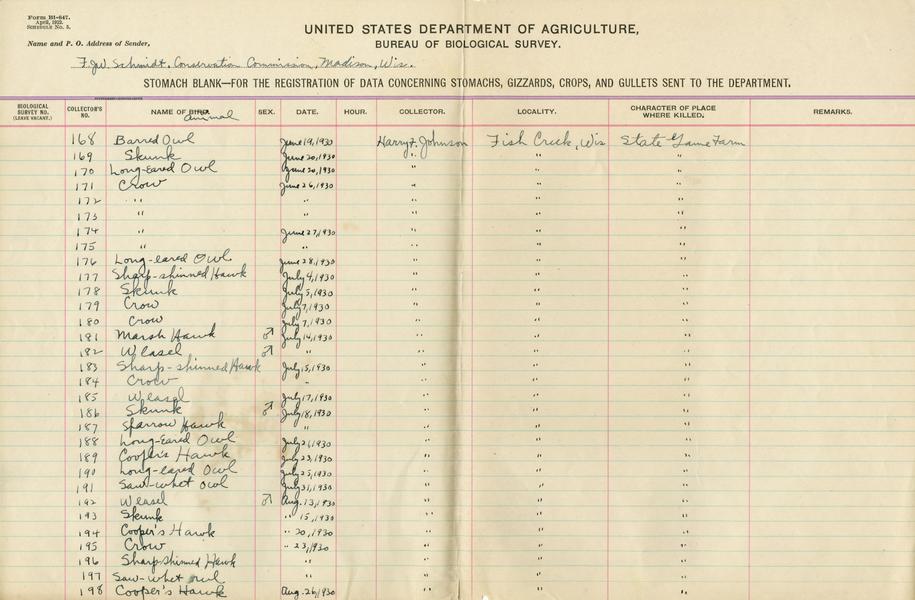 Form BI-647.
April, 1922.
Schedule No. 5.
UNITED STATES DEPARTMENT OF AGRICULTURE,
BUREAU OF BIOLOGICAL SURVEY.
Name and P. O. Address of Sender,
F.J.W. Schmidt, Conservation Commission, Madison, Wis.
STOMACH BLANK—FOR THE REGISTRATION OF DATA CONCERNING STOMACHS, GIZZARDS, CROPS, AND GULLETS SENT TO THE DEPARTMENT.
BIOLOGICAL SURVEY NO. (LEAVE VACANT.) COLLECTOR'S NO. NAME OF BIRD. animal SEX. DATE. HOUR. COLLECTOR. LOCALITY. CHARACTER OF PLACE WHERE KILLED. REMARKS.
168 Barred Owl June 19, 1930 Harry Johnson Fish Creek, Wis State Game Farm
169 Skunk June 20, 1930 " " "
170 Long-Eared Owl June 20, 1930 " " "
171 Crow June 26, 1930 " " "
172 " " " " "
173 " " " "
174 " June 27, 1930 " " "
175 " " " " "
176 Long-eared Owl June 28, 1930 " " "
177 Sharp-shinned Hawk July 4, 1930 " " "
178 Skunk July 5, 1930 " " "
179 Crow July 7, 1930 " " "
180 Crow July 7, 1930 " " "
181 Marsh Hawk ♂ July 14, 1930 " " "
182 Weasel ♂ " " " "
183 Sharp-shinned Hawk July 15, 1930 " " "
184 Crow " " " "
185 Weasel July 17, 1930 " " "
186 Skunk ♂ July 18, 1930 " " "
187 Sparrow Hawk " " " "
188 Long-Eared Owl July 21, 1930 " " "
189 Cooper's Hawk July 23, 1930 " " "
190 Long-eared Owl July 25, 1930 " " "
191 Saw-whet Owl July 31, 1930 " " "
192 Weasel ♂ Aug. 13, 1930 " " "
193 Skunk " 15, 1930 " " "
194 Cooper's Hawk " 20, 1930 " " "
195 Crow " 23, 1930 " " "
196 Sharp shinned Hawk " " " "
197 Saw-whet owl " " " "
198 Cooper's Hawk Aug. 26, 1930 " " "